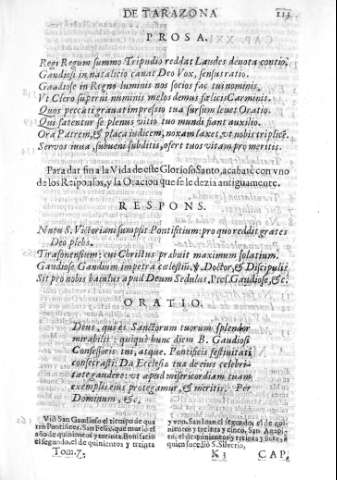 DE TARAZONA
113
PROSA.
Regi Regum summo Tripudio reddat Laudes deuota contio,
Gaudiosi in natalitio canat Deo Vox, sensus ratio.
Gaudiose in Regno luminis nos socios fac tui nominis,
Vt Clero supremi numinis melos demus fœlicis Carminis.
Quos peccati grauat impressio tua sursum leuet Oratio.
Qui fatentur se plenus vitio tuo mundi fiant auxilio.
Ora Patrem, & placa iudicem, noxam laxet, vt nobis triplicẽ.
Seruos iuua, subueni subditis, osert tuos vitam pro meritis.
Para dar fin a la Vida de este Glorioso Santo, acabarè con vno
de los Responsos, y la Oracion que se le dezia antiguamente.
RESPONS.
Nutu S. Victoriani sumpsit Pontificium: pro quo reddit grates
Deo plebs.
Tirasonensium; cui Christus prabuit maximum solatium.
Gaudiose Gaudium impetra cœlestiũ. Doctor, & Discipuli
Sit pro nobis baiulus apud Deum Sedulus, Præs. Gaudiose, &c.
ORATIO.
Deus, qui es Sanctorum tuorum splendor
mirabilis: quique hunc diem B. Gaudiosi
Confessoris tui, atque Pontificis festiuitati
consecrasti: Da Ecclesia tua de eius celebri-
tate gaudere: vt apud misericordiam tuam
exemplis eius protegamur, & meritis. Per
Dominum, &c.
Viò San Gaudioso el tiempo de qua
tro Pontifices. San Felix, que muriò el
año de quinientos y treinta. Bonifacio
el segundo, el de quinientos y treinta
y vno. San Iuan el segundo, el de qui-
nientos y treinta y cinco. San Agapi-
to, el de quinientos y treinta y seis, a
quien sucediò S. Silverio,
Tom. 7.
K 3
CAP.